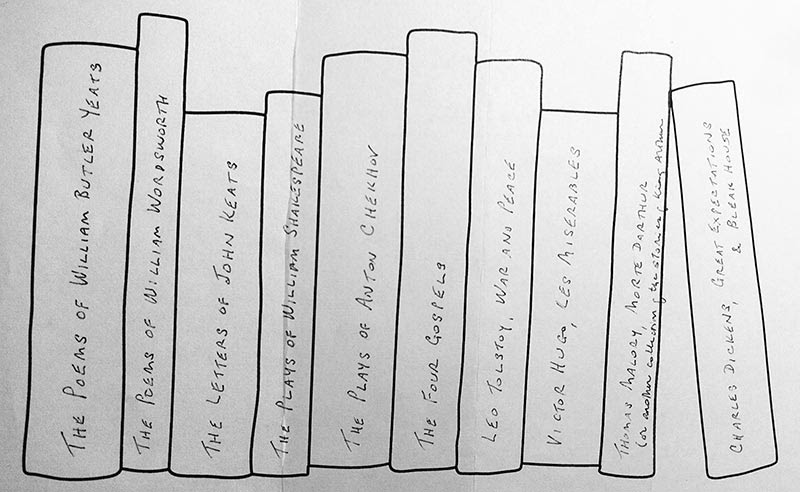 THE POEMS OF WILLIAM BUTLER YEATS
THE POEMS OF WILLIAM WORDSWORTH
THE LETTERS OF JOHN KEATS
THE PLAYS OF WILLIAM SHAKESPEARE
THE PLAYS OF ANTON CHEKHOV
THE FOUR GOSPELS
LEO TOLSTOY, WAR AND PEACE
VICTOR HUGO, LES MISERABLES
THOMAS MALORY, MORTE DARTHUR
(or another collection of the stories of King Arthur
CHARLES DICKENS, GREAT EXPECTATIONS
& BLEAK HOUSE